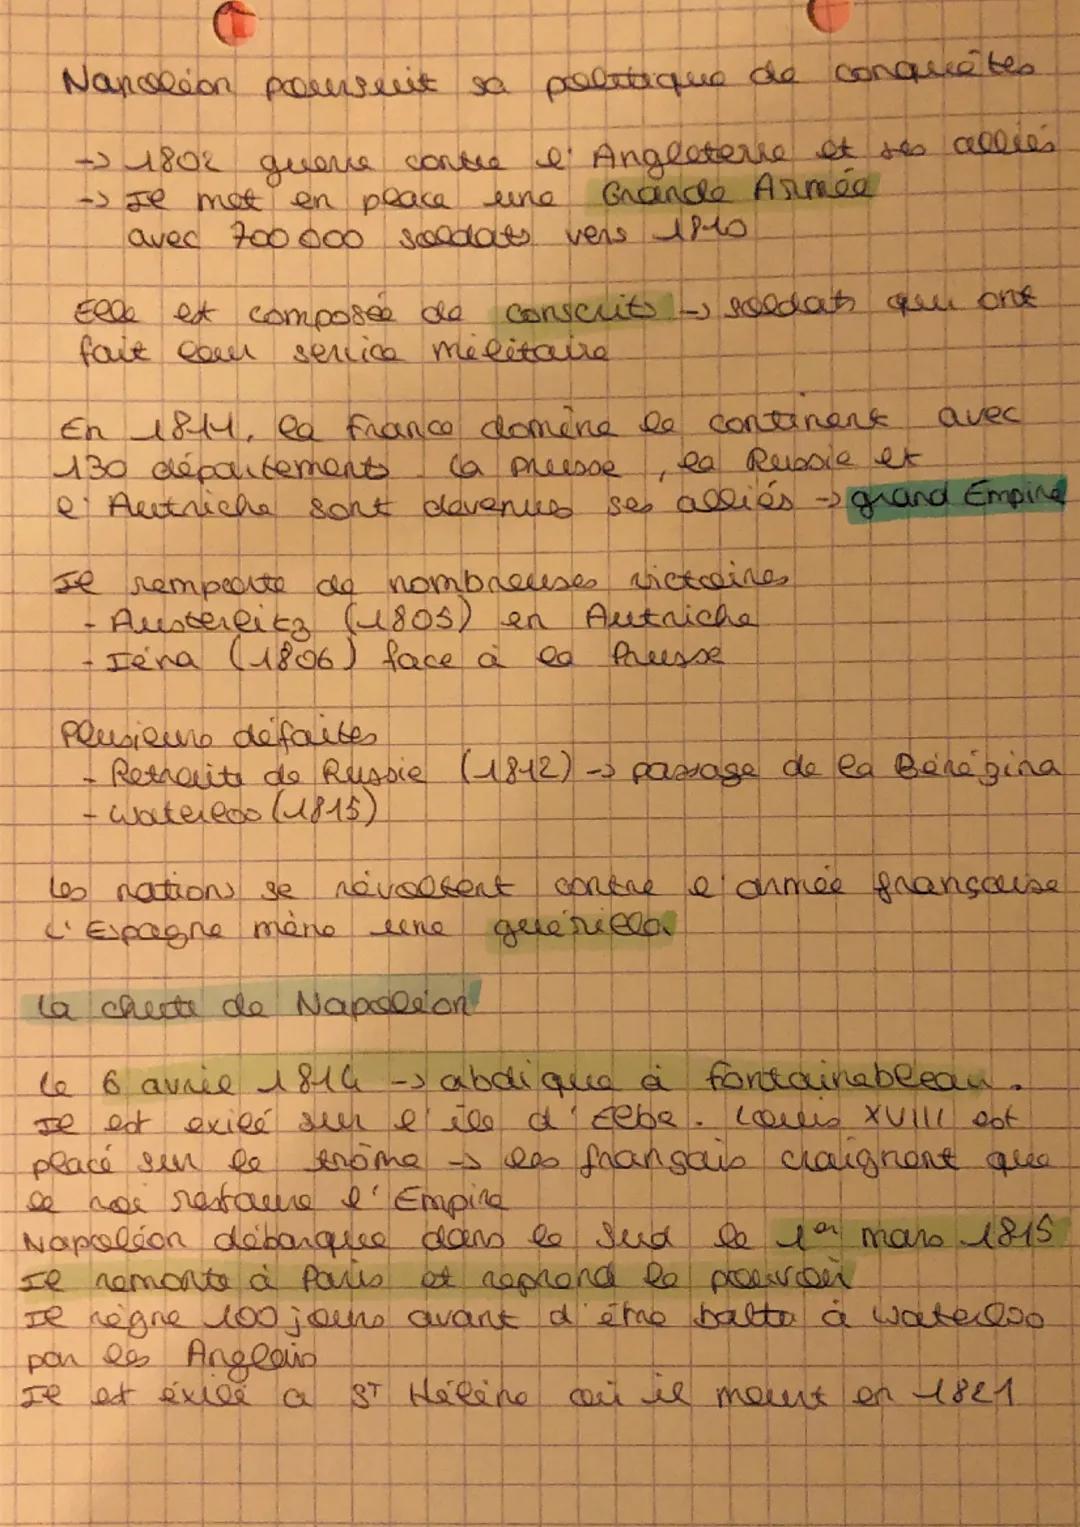 Napoléon poursuit sa politique de conquêtes
-> 1802 guerre contre l'Angleterre et ses alliés
-> Il met en place une Grande Armée
avec 700 000 soldats vers 1810
Elle est composée de conscrits -> soldats qui ont
fait leur service militaire
En 1811, la France domine le continent avec
130 départements la Prusse, la Russie et
l'Autriche sont devenus ses alliés -> grand Empire
Il remporte de nombreuses victoires
- Austerlitz (1805) en Autriche
- Iéna (1806) face à la Prusse
Plusieurs défaites
- Retraite de Russie (1812) -> passage de la Bérégina
- Waterloo (1815)
les nations se révoltent contre l'armée française
L'Espagne mène une guérilla
La chute de Napoléon
Le 6 avril 1814 -> abdique à Fontainebleau.
Il est exilé sur l'île d'Elbe. Louis XVIII est
placé sur le trôme -> les français craignent que
le roi restaure l'Empire
Napoléon débarque dans le Sud le 1er mars 1815
Il remonte à Paris et reprend le pouvoir
Il règne 100 jours avant d'être battu à Waterloo
par les Anglais
Il est éxilé a ST Hélène où il meurt en 1821